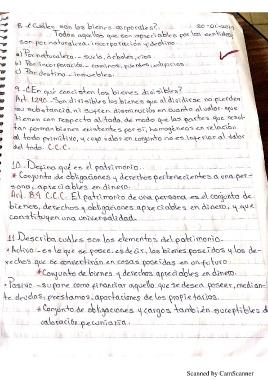 8.-¿Cuáles son los bienes corporales?
Todos aquellos que son apreciables por los sentidos
son por naturaleza, incorporación y destino
a) Por naturaleza - suelo, árboles, ríos
b) Por incorporación - caminos, puentes, edificios
c) Por destino - inmuebles.
9.-¿En qué consisten los bienes divisibles?
Art. 1290.- Son divisibles los bienes que al dividirse no pierden
su substancia, ni sufren disminución en cuanto al valor que
tienen con respecto al todo, de modo que las partes que resul-
tan forman bienes existentes por sí, homogéneos en relación
al todo primitivo, y cuyo valor en conjunto no es inferior al valor
del todo. C.C.C.
10. Defina qué es el patrimonio.
* Conjunto de obligaciones y derechos pertenecientes a una per-
sona, apreciables en dinero.
Art. 84 C.C.C. El patrimonio de una persona es el conjunto de
bienes, derechos y obligaciones apreciables en dinero, y que
constituyen una universalidad.
11. Describa cuáles son los elementos del patrimonio.
• Activo - es lo que se posee, es decir, los bienes poseídos y los de-
rechos que se convertirán en cosas poseídas en un futuro
* Conjunto de bienes y derechos apreciables en dinero.
• Pasivo - supone como financiar aquello que se desea poseer, median-
te deudas, prestamos, aportaciones de los propietarios.
* Conjunto de obligaciones y cargos también suceptibles d
valoración pecuniaria.
Scanned by CamScanner